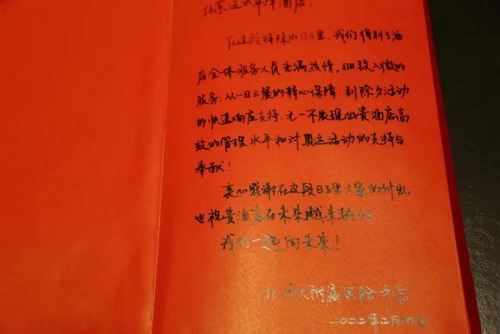 在这段特殊的日子里，我们得到了酒
店全体服务人员充满热情，细致入微的
服务。从一日三餐的精心保障，到除夕活动
的快速响应支持，无一不展现出贵酒店高
效的管理水平和对奥运活动的支持与
奉献！
衷心感谢在这段日子里大家的付出，
也祝贵酒店在未来越来越好。
我们一起向未来！
附属实验中学
二〇二二年二月